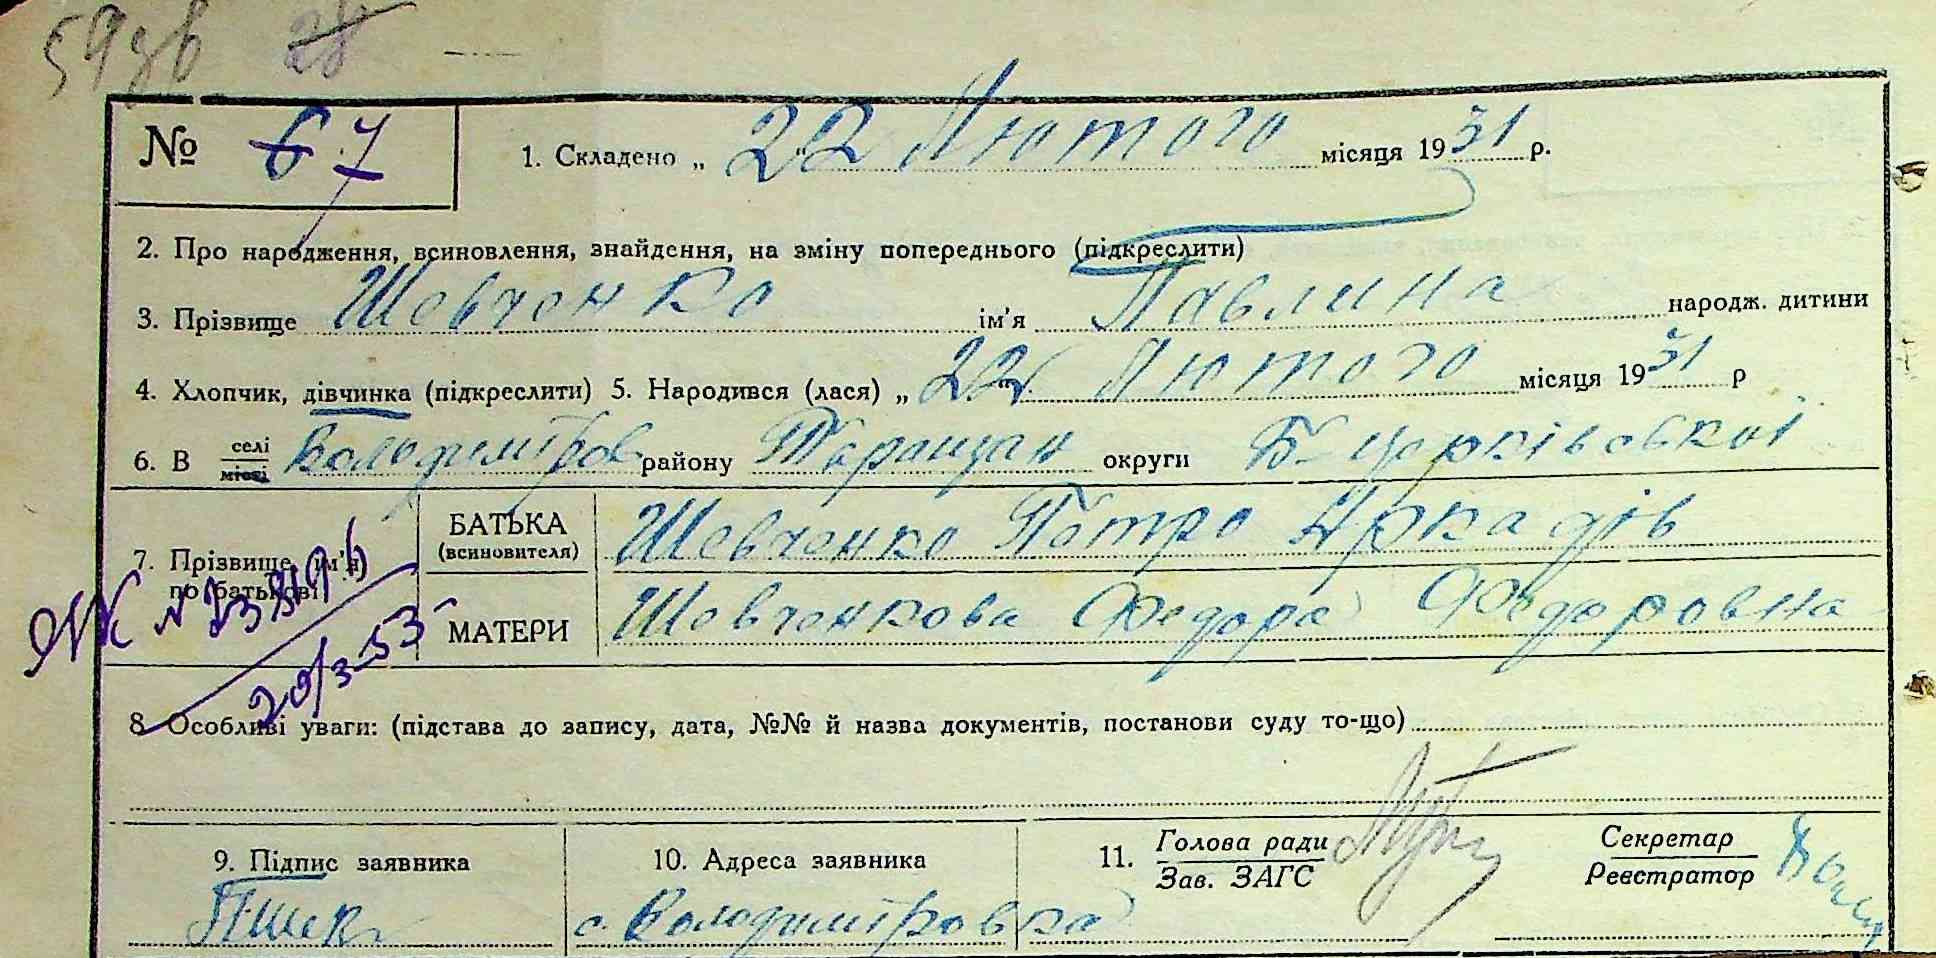 59 зв 28
№ 67 1. Складено „22“ Лютого місяця 1931 р.
2. Про народження, всиновлення, знайдення, на зміну попереднього (підкреслити)
3. Прізвище Шевченко ім'я Павлина народж. дитини
4. Хлопчик, дівчинка (підкреслити) 5. Народився (лася) „22“ Лютого місяця 1931 р
6. В селі/місті Володиміров району Таращан округи Б-Церківської
7. Прізвище, ім'я, по батькові
БАТЬКА (всиновителя) Шевченко Петро Аркадів
МАТЕРИ Шевченкова Федора Федоровна
20/3-53
8. Особливі уваги: (підстава до запису, дата, №№ й назва документів, постанови суду то-що)
9. Підпис заявника 10. Адреса заявника 11. Голова ради / Зав. ЗАГС Секретар / Реєстратор
с. Володиміровка